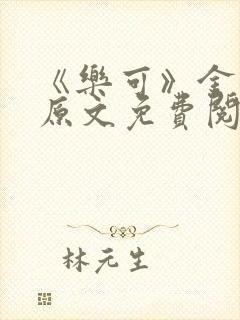 《樂可》金
原文免費閱
林元生